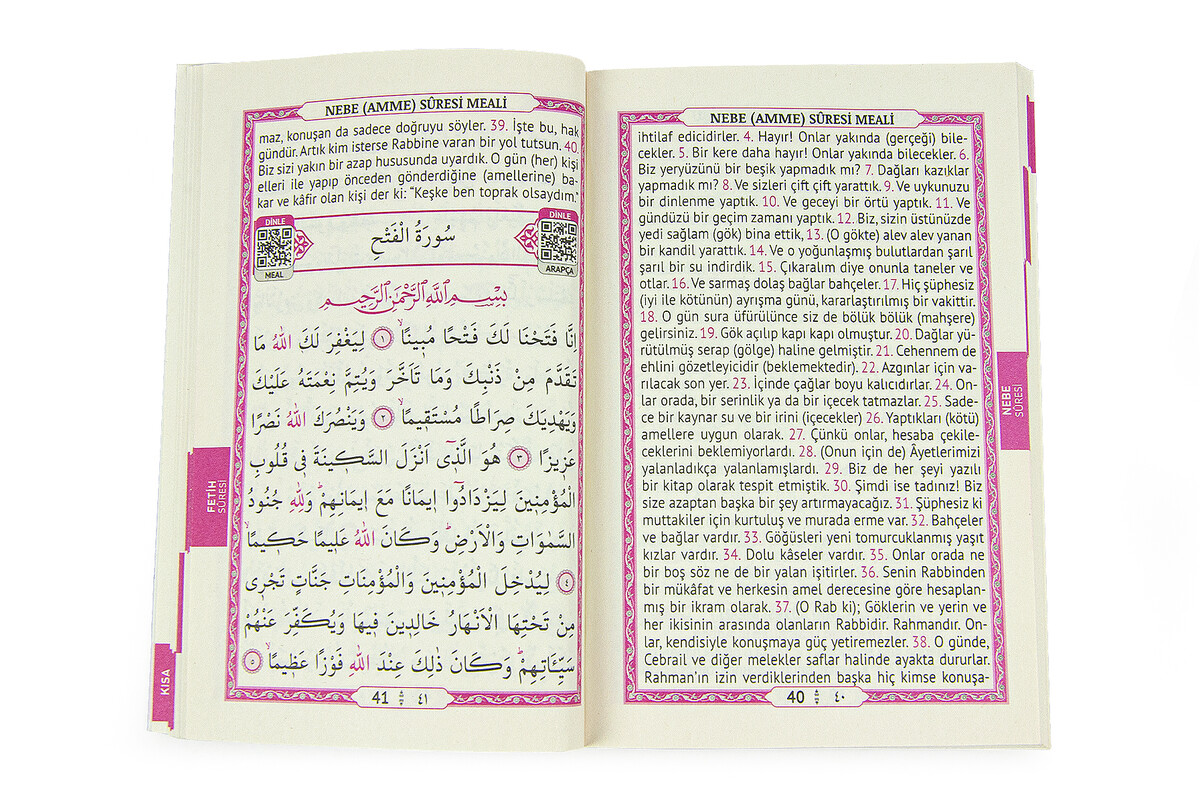 NEBE (AMME) SÛRESİ MEALİ
ihtilaf edicidirler. 4. Hayır! Onlar yakında (gerçeği) bile-
cekler. 5. Bir kere daha hayır! Onlar yakında bilecekler. 6.
Biz yeryüzünü bir beşik yapmadık mı? 7. Dağları kazıklar
yapmadık mı? 8. Ve sizleri çift çift yarattık. 9. Ve uykunuzu
bir dinlenme yaptık. 10. Ve geceyi bir örtü yaptık. 11. Ve
gündüzü bir geçim zamanı yaptık. 12. Biz, sizin üstünüzde
yedi sağlam (gök) bina ettik, 13. (O gökte) alev alev yanan
bir kandil yarattık. 14. Ve o yoğunlaşmış bulutlardan şarıl
şarıl bir su indirdik. 15. Çıkaralım diye onunla taneler ve
otlar. 16. Ve sarmaş dolaş bağlar bahçeler. 17. Hiç şüphesiz
(iyi ile kötünün) ayrışma günü, kararlaştırılmış bir vakittir.
18. O gün sura üfürülünce siz de bölük bölük (mahşere)
gelirsiniz. 19. Gök açılıp kapı kapı olmuştur. 20. Dağlar yü-
rütülmüş serap (gölge) haline gelmiştir. 21. Cehennem de
ehlini gözetleyicidir (beklemektedir). 22. Azgınlar için va-
rılacak son yer. 23. İçinde çağlar boyu kalıcıdırlar. 24. On-
lar orada, bir serinlik ya da bir içecek tatmazlar. 25. Sade-
ce bir kaynar su ve bir irini (içecekler) 26. Yaptıkları (kötü)
amellere uygun olarak. 27. Çünkü onlar, hesaba çekile-
ceklerini beklemiyorlardı. 28. (Onun için de) Âyetlerimizi
yalanladıkça yalanlamışlardı. 29. Biz de her şeyi yazılı
bir kitap olarak tespit etmiştik. 30. Şimdi ise tadınız! Biz
size azaptan başka bir şey artırmayacağız. 31. Şüphesiz ki
muttakiler için kurtuluş ve murada erme var. 32. Bahçeler
ve bağlar vardır. 33. Göğüsleri yeni tomurcuklanmış yaşıt
kızlar vardır. 34. Dolu kâseler vardır. 35. Onlar orada ne
bir boş söz ne de bir yalan işitirler. 36. Senin Rabbinden
bir mükâfat ve herkesin amel derecesine göre hesaplan-
mış bir ikram olarak. 37. (O Rab ki); Göklerin ve yerin ve
her ikisinin arasında olanların Rabbidir. Rahmandır. On-
lar, kendisiyle konuşmaya güç yetiremezler. 38. O günde,
Cebrail ve diğer melekler saflar halinde ayakta dururlar.
Rahman'ın izin verdiklerinden başka hiç kimse konuşa-
40 ٤٠
NEBE
SÛRESİ
NEBE (AMME) SÛRESİ MEALİ
maz, konuşan da sadece doğruyu söyler. 39. İşte bu, hak
gündür. Artık kim isterse Rabbine varan bir yol tutsun. 40.
Biz sizi yakın bir azap hususunda uyardık. O gün (her) kişi
elleri ile yapıp önceden gönderdiğine (amellerine) ba-
kar ve kâfir olan kişi der ki: "Keşke ben toprak olsaydım."
DİNLE
MEAL
سُورَةُ الْفَتْحِ
DİNLE
ARAPÇA
بِسْمِ اللّٰهِ الرَّحْمٰنِ الرَّحِيمِ
اِنَّا فَتَحْنَا لَكَ فَتْحًا مُبِينًاۙ ﴿١﴾ لِيَغْفِرَ لَكَ اللّٰهُ مَا
تَقَدَّمَ مِنْ ذَنْبِكَ وَمَا تَاَخَّرَ وَيُتِمَّ نِعْمَتَهُ عَلَيْكَ
وَيَهْدِيَكَ صِرَاطًا مُسْتَقِيمًاۙ ﴿٢﴾ وَيَنْصُرَكَ اللّٰهُ نَصْرًا
عَزِيزًا ﴿٣﴾ هُوَ الَّذِٓي اَنْزَلَ السَّكِينَةَ فِي قُلُوبِ
الْمُؤْمِنِينَ لِيَزْدَادُٓوا اِيمَانًا مَعَ اِيمَانِهِمْۜ وَلِلّٰهِ جُنُودُ
السَّمٰوَاتِ وَالْاَرْضِۜ وَكَانَ اللّٰهُ عَلِيمًا حَكِيمًاۙ
﴿٤﴾ لِيُدْخِلَ الْمُؤْمِنِينَ وَالْمُؤْمِنَاتِ جَنَّاتٍ تَجْرِي
مِنْ تَحْتِهَا الْاَنْهَارُ خَالِدِينَ فِيهَا وَيُكَفِّرَ عَنْهُمْ
سَيِّـَٔاتِهِمْۜ وَكَانَ ذٰلِكَ عِنْدَ اللّٰهِ فَوْزًا عَظِيمًاۙ ﴿٥﴾
41 ٤١
FETİH
SÛRESİ
KISA